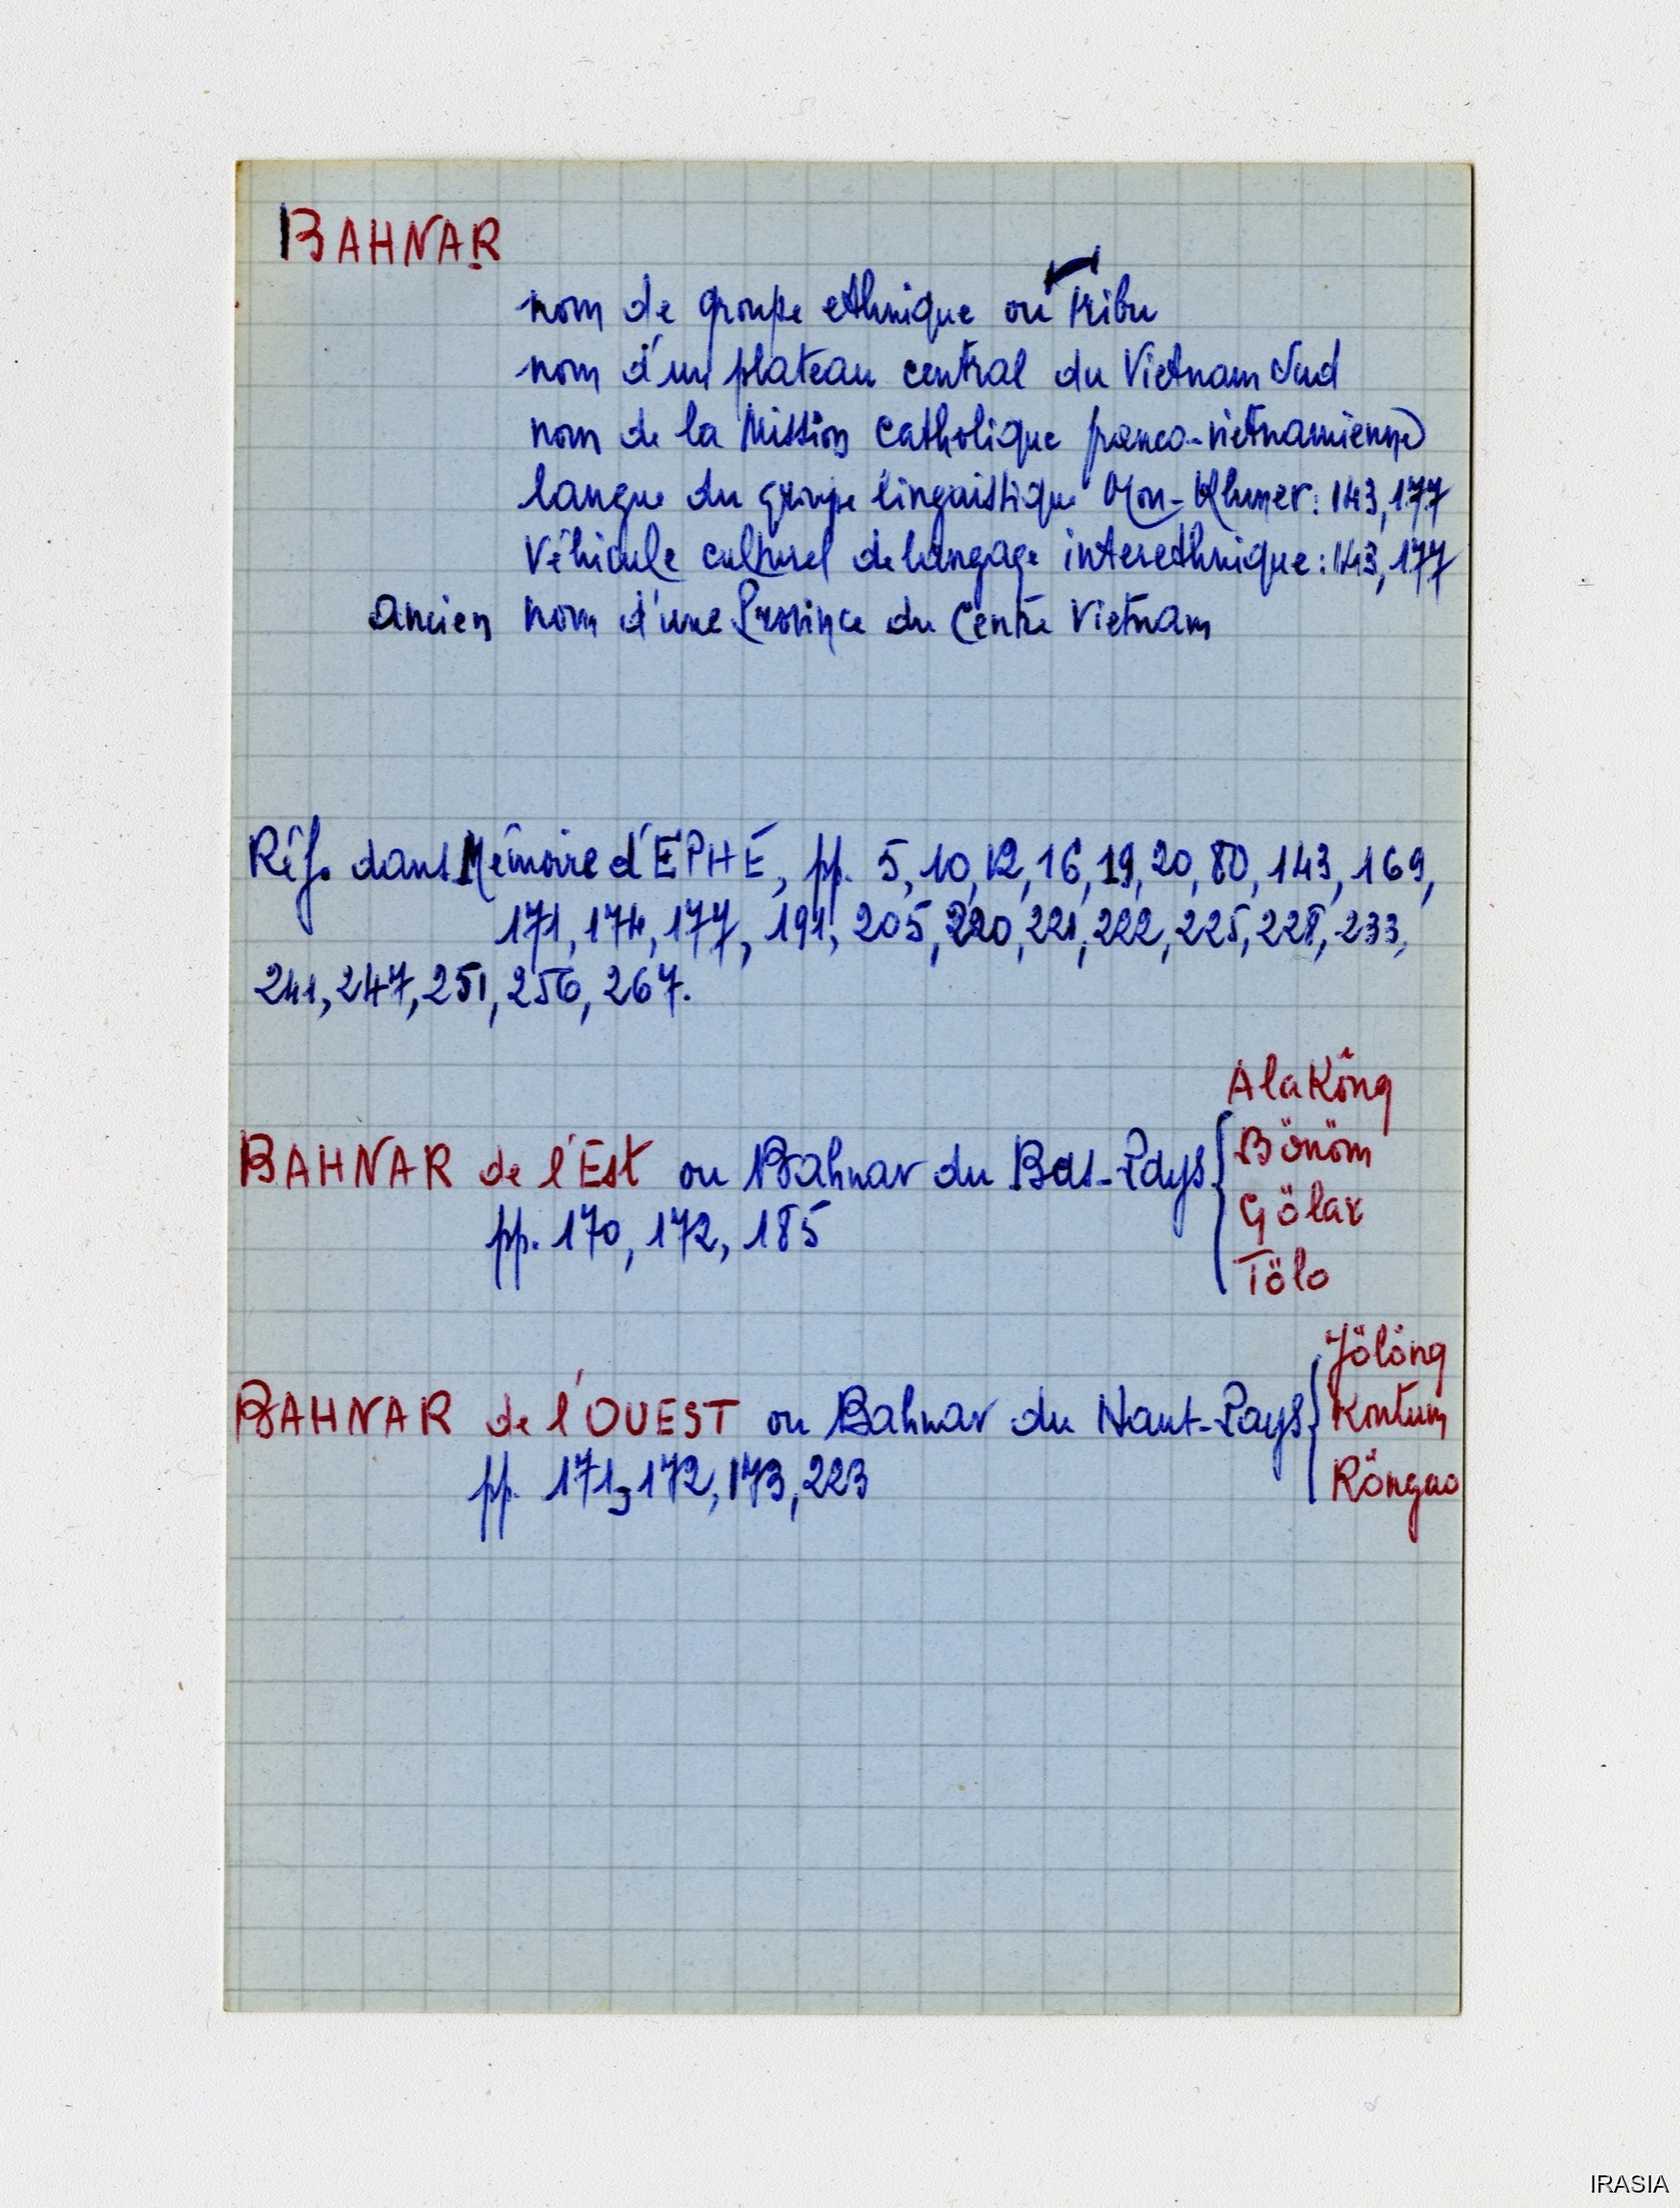 BAHNAR
nom de groupe ethnique ou Tribu
nom d'un plateau central du Vietnam Sud
nom de la Mission Catholique franco-vietnamienne
langue du groupe linguistique Mon-Khmer: 143, 177
Véhicule culturel de langage interethnique: 143, 177
ancien nom d'une Province du Centre Vietnam
Réf. dans Mémoire d'EPHE, pp. 5, 10, 12, 16, 19, 20, 80, 143, 169,
171, 174, 177, 191, 205, 220, 221, 222, 225, 228, 233,
241, 247, 251, 256, 267.
AlaKông
BAHNAR de l'Est ou Bahnar du Bas-Pays { Bönöm
pp. 170, 172, 185
Gölar
Tölo
Jölöng
BAHNAR de l'OUEST ou Bahnar du Haut-Pays { Kontum
pp. 171, 172, 173, 223
Röngao
IRASIA